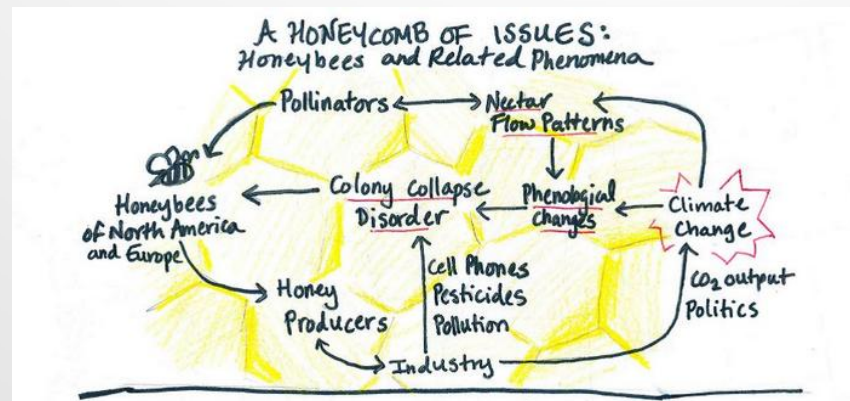 A HONEYCOMB OF ISSUES:
Honeybees and Related Phenomena
Pollinators
Nectar
Flow Patterns
Honeybees
of North America
and Europe
Colony Collapse
Disorder
Phenological
changes
Climate
Change
Cell Phones
Pesticides
Pollution
CO2 output
Politics
Honey
Producers
Industry